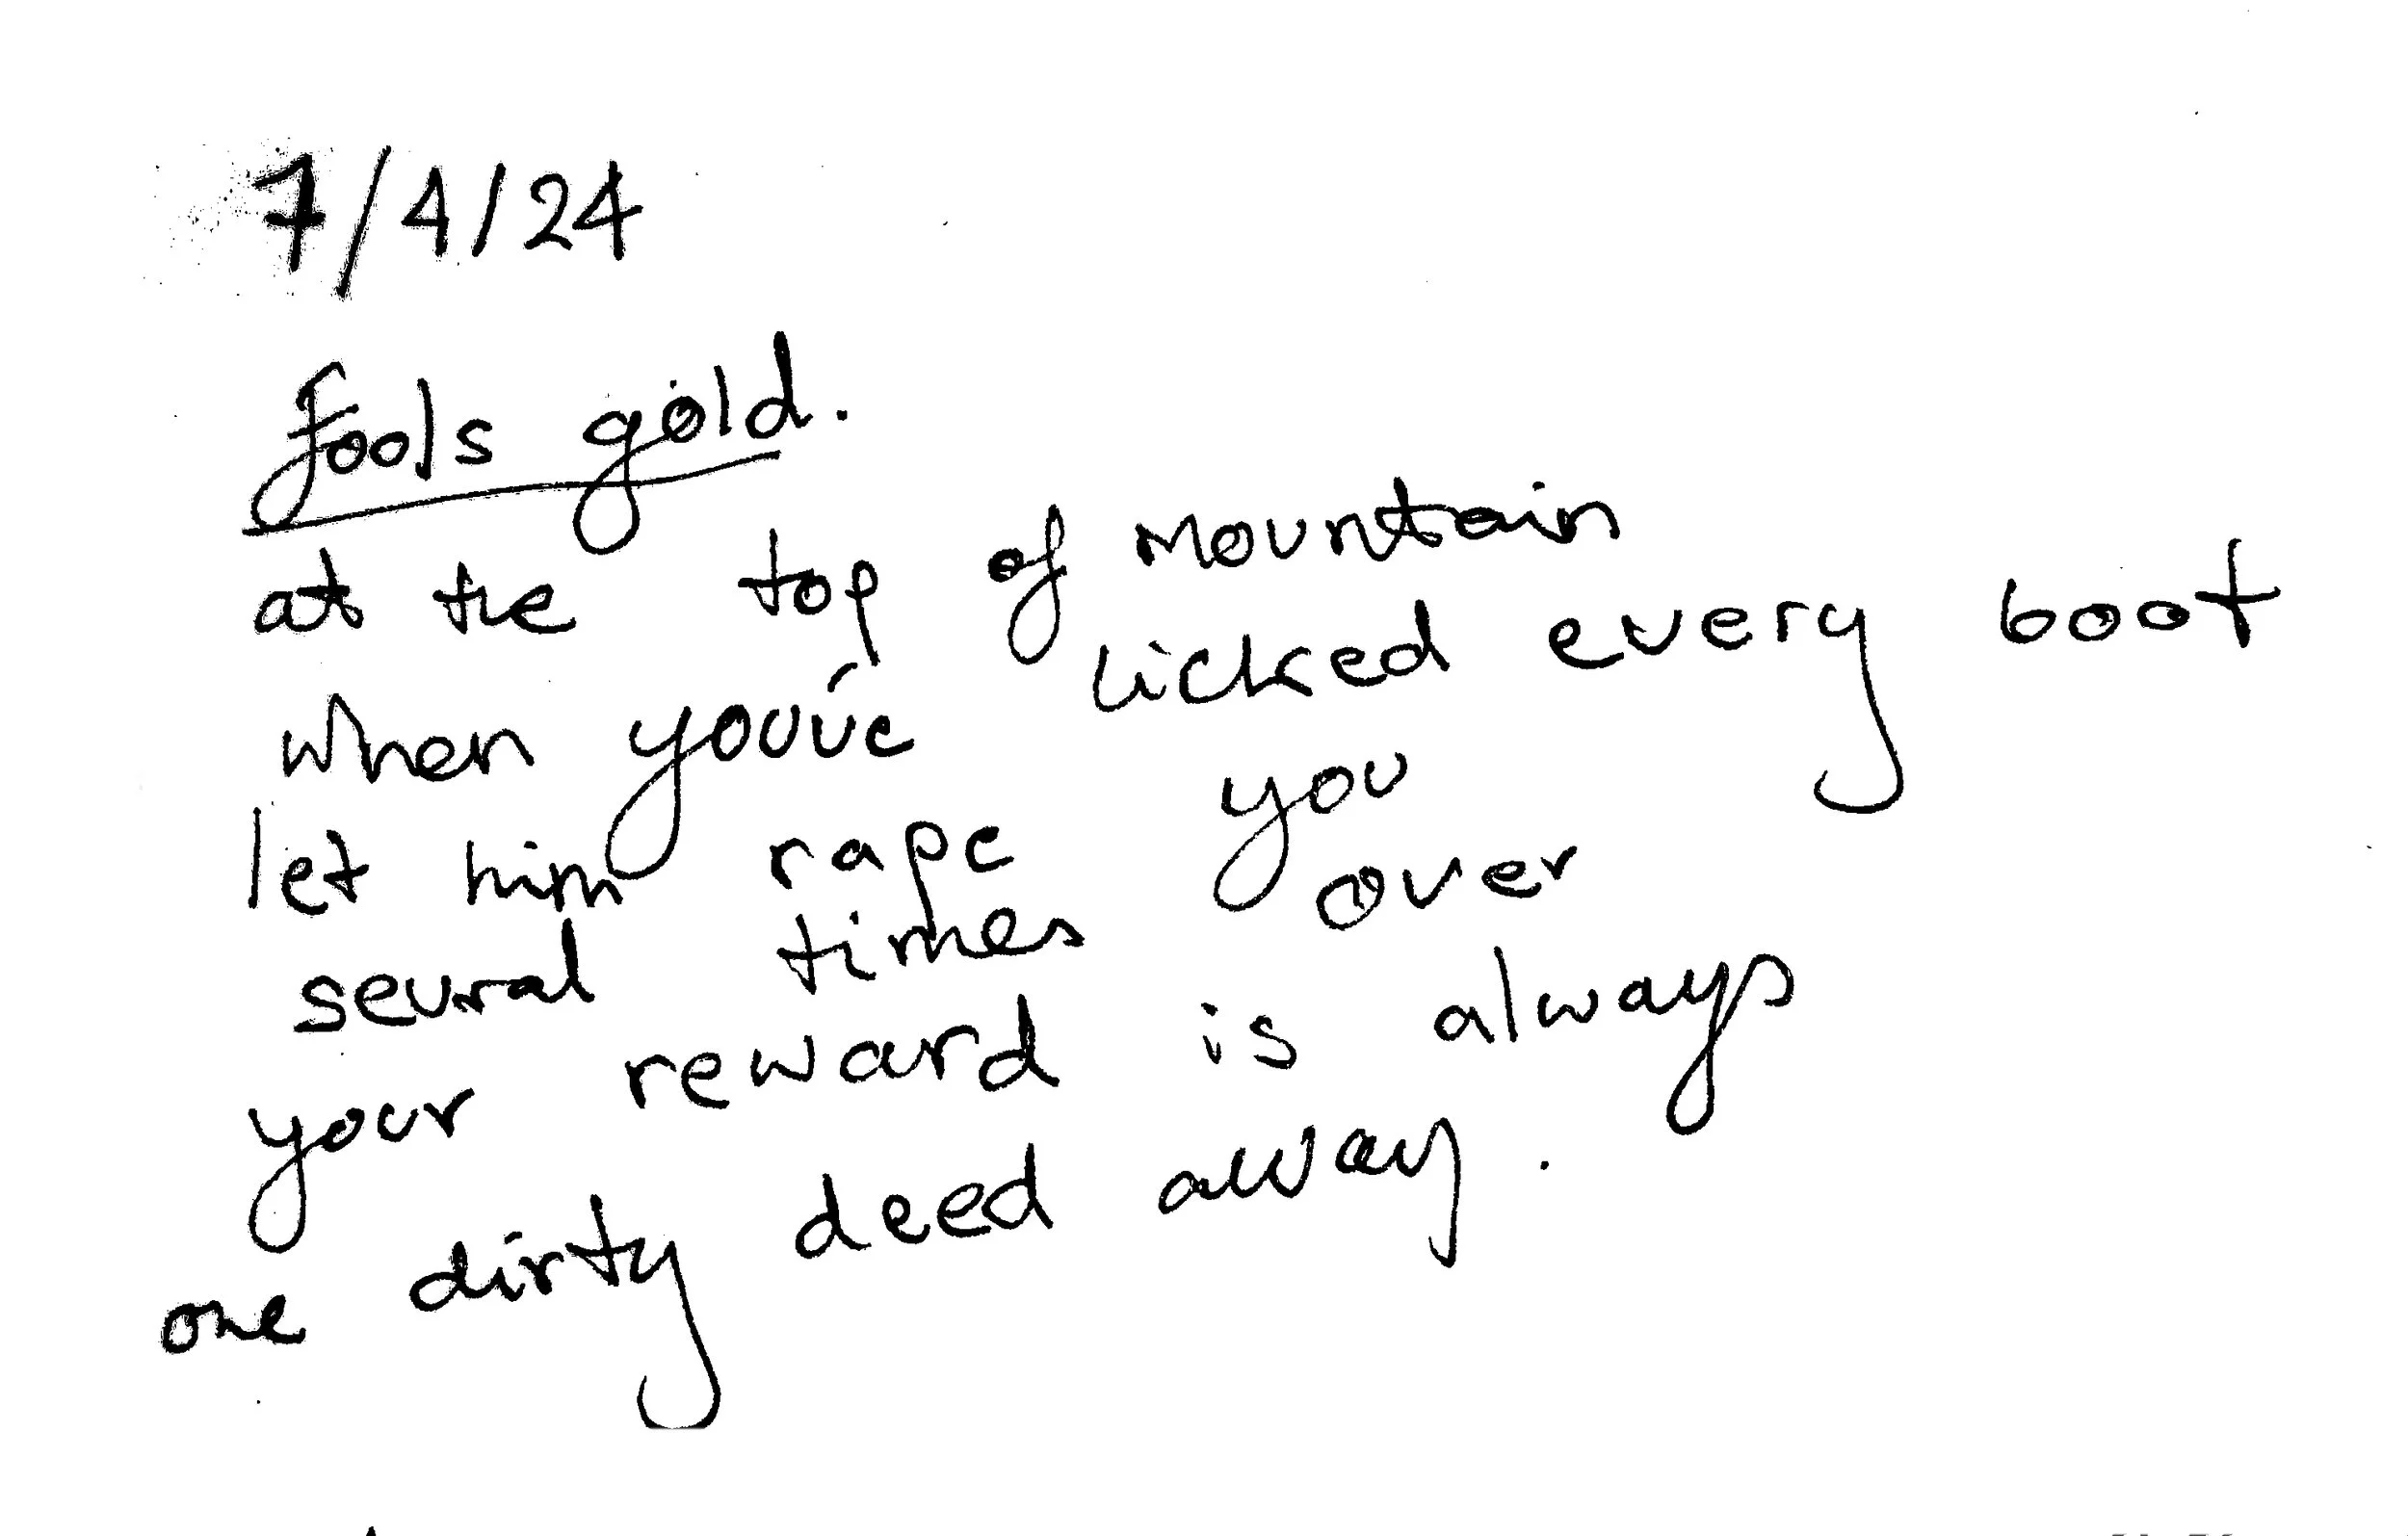 7/4/24
fools gold.
at the top of mountain
when you've licked every boot
let him rape you
several times over
your reward is always
one dirty deed away.